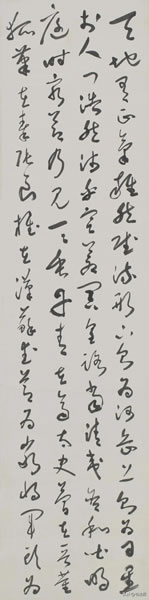 天地有正氣雜然賦流形下則為河嶽上則為日星
於人曰浩然沛乎塞蒼冥皇路當清夷含和吐明
庭時窮節乃見一一垂丹青在齊太史簡在晉董
狐筆在秦張良椎在漢蘇武節為嚴將軍頭為